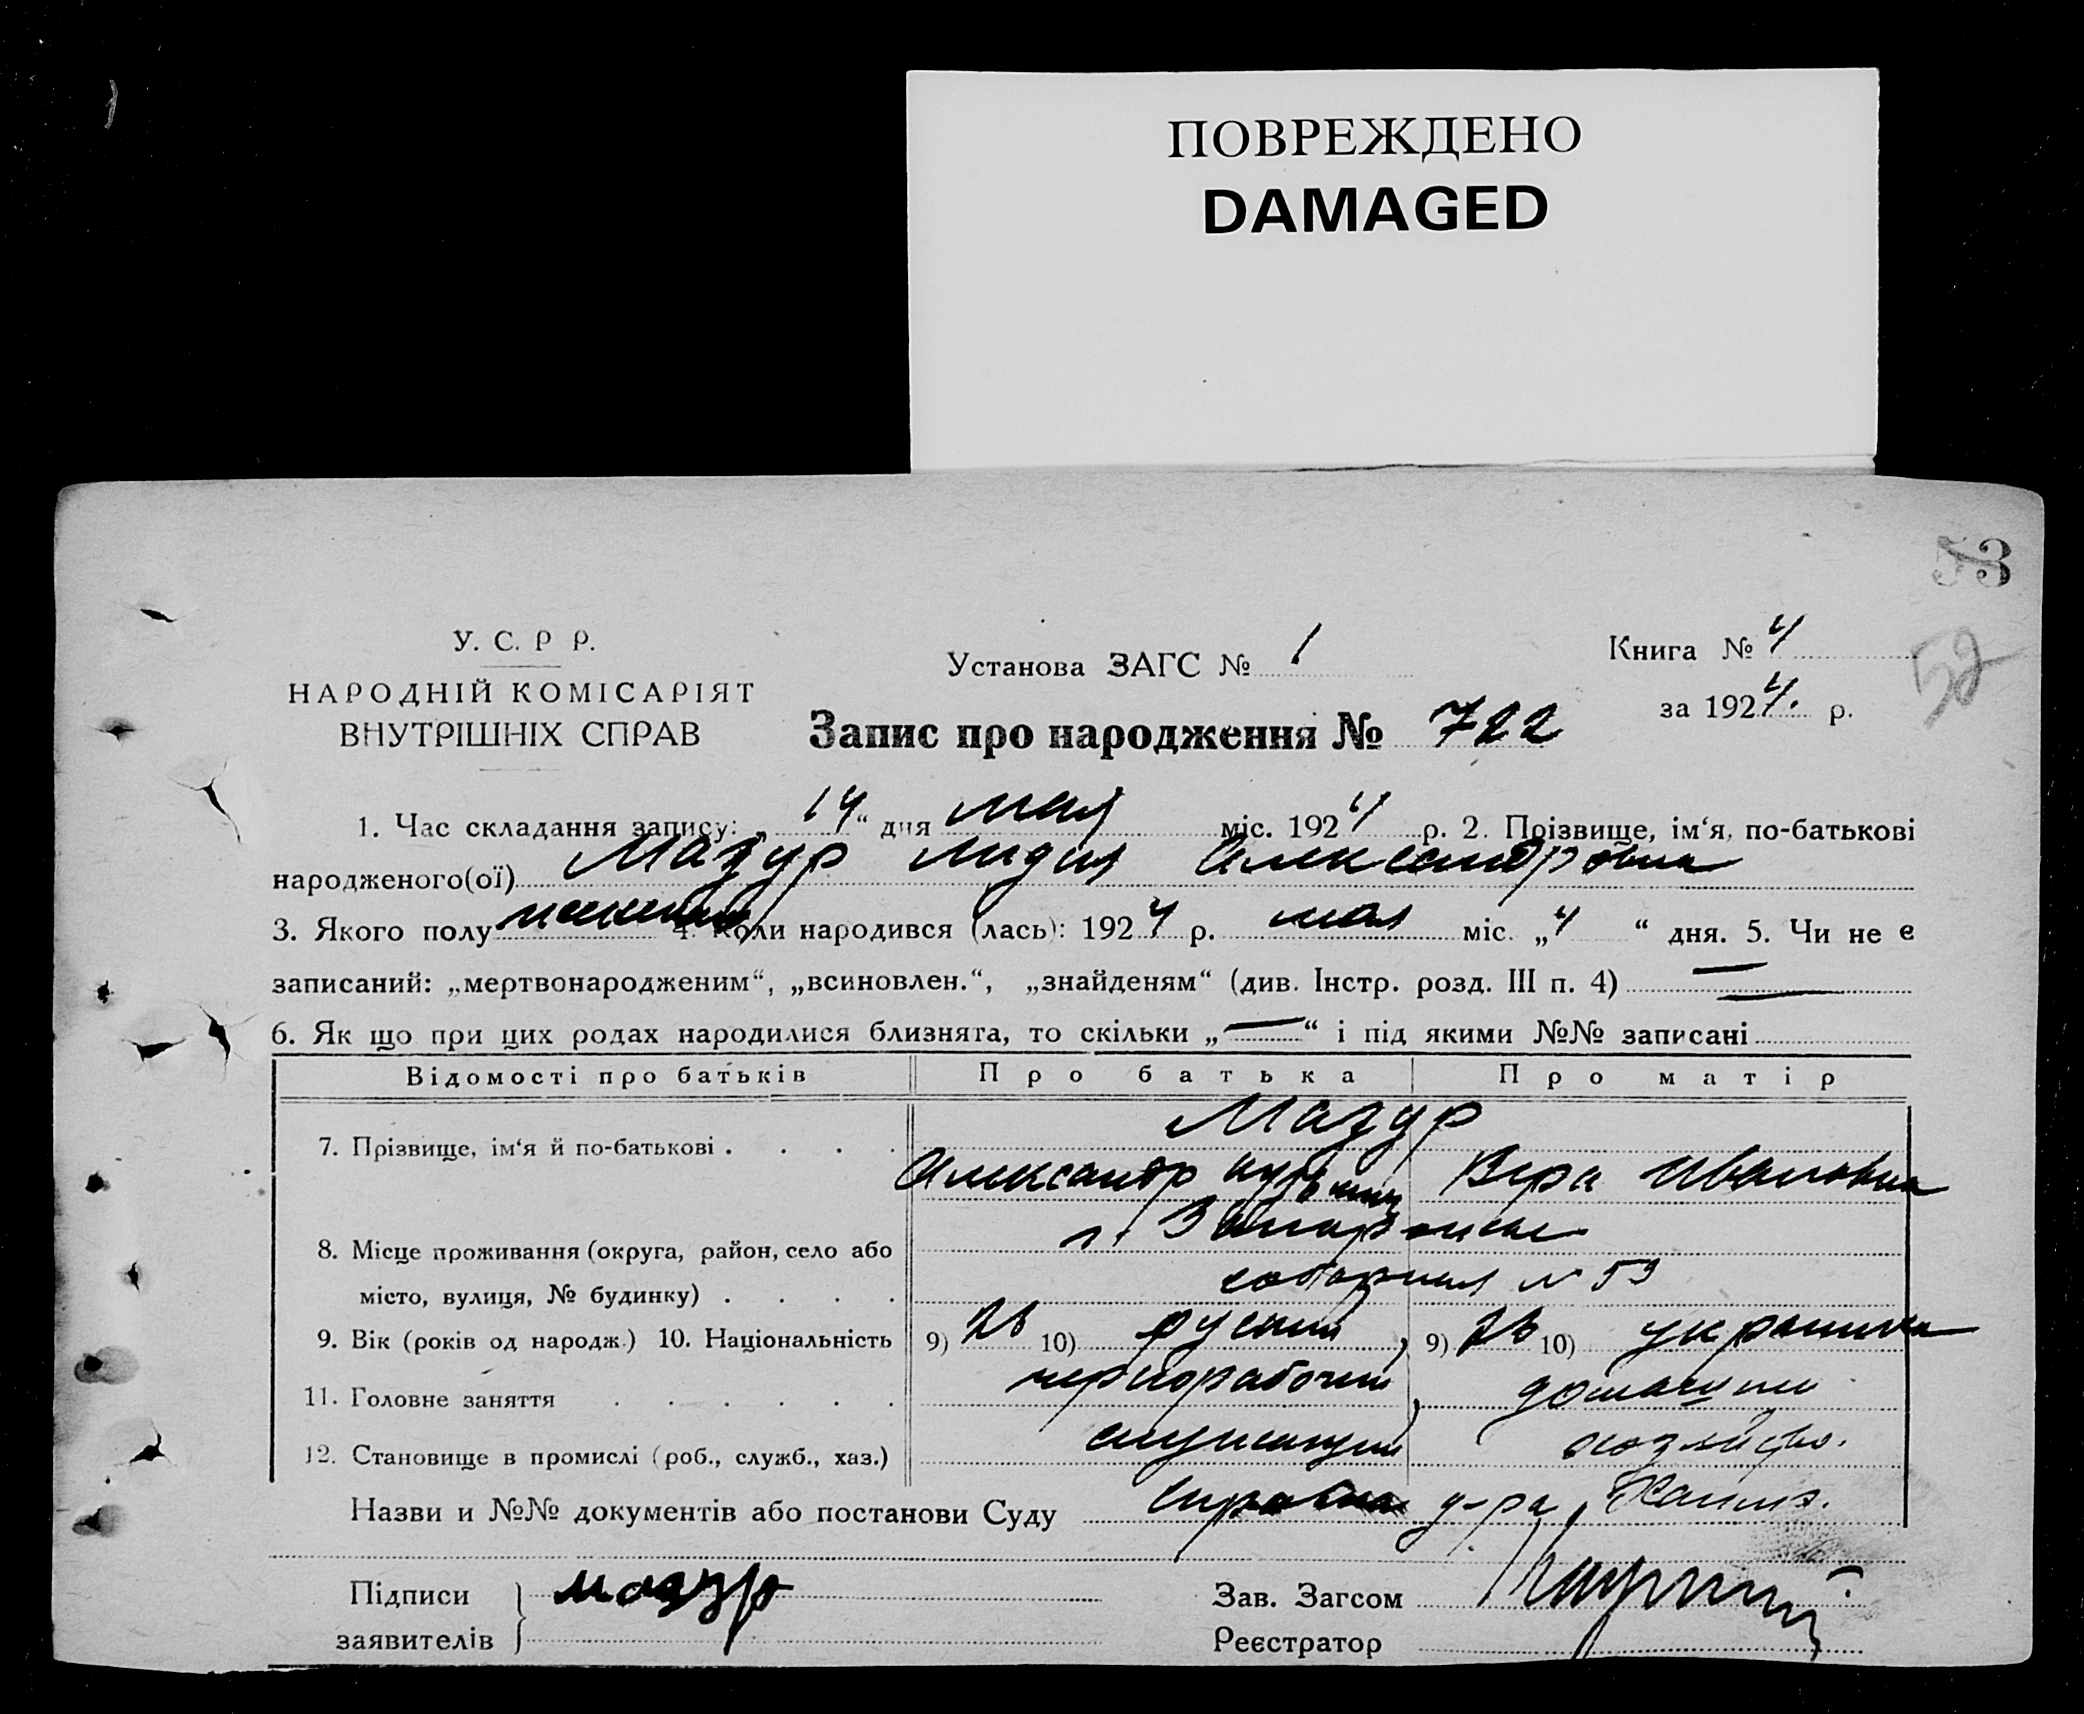 ПОВРЕЖДЕНО
DAMAGED
53
52
У. С. Р Р.
НАРОДНІЙ КОМІСАРІЯТ
ВНУТРІШНІХ СПРАВ
Установа ЗАГС № 1
Книга № 4
за 1924. р.
Запис про народження № 722
1. Час складання запису: „14“ дня мая міс. 1924 р. 2. Прізвище, ім‘я, по-батькові
народженого(ої) Мазур Лидия Александровна
3. Якого полу женский 4. Коли народився (лась): 1924 р. мая міс. „4“ дня. 5. Чи не є
записаний: „мертвонародженим“, „всиновлен.“, „знайденям“ (див. Інстр. розд. III п. 4) —
6. Як що при цих родах народилися близнята, то скільки „—“ і під якими №№ записані
Відомості про батьків Про батька Про матір
Мазур
7. Прізвище, ім‘я й по-батькові . . . .
Александр Вера Ивановна
г. Запорожье
8. Місце проживання (округа, район, село або
соборная № 59
місто, вулиця, № будинку) . . . .
9. Вік (років од народж.) 10. Національність 9) 26 10) руский 9) 26 10) украинка
11. Головне заняття . . . . . . чернорабочий домашнее
12. Становище в промислі (роб., служб., хаз.) служащий хозяйство.
Назви и №№ документів або постанови Суду справка д-ра
Підписи
заявителів
мазур
Зав. Загсом
Реєстратор